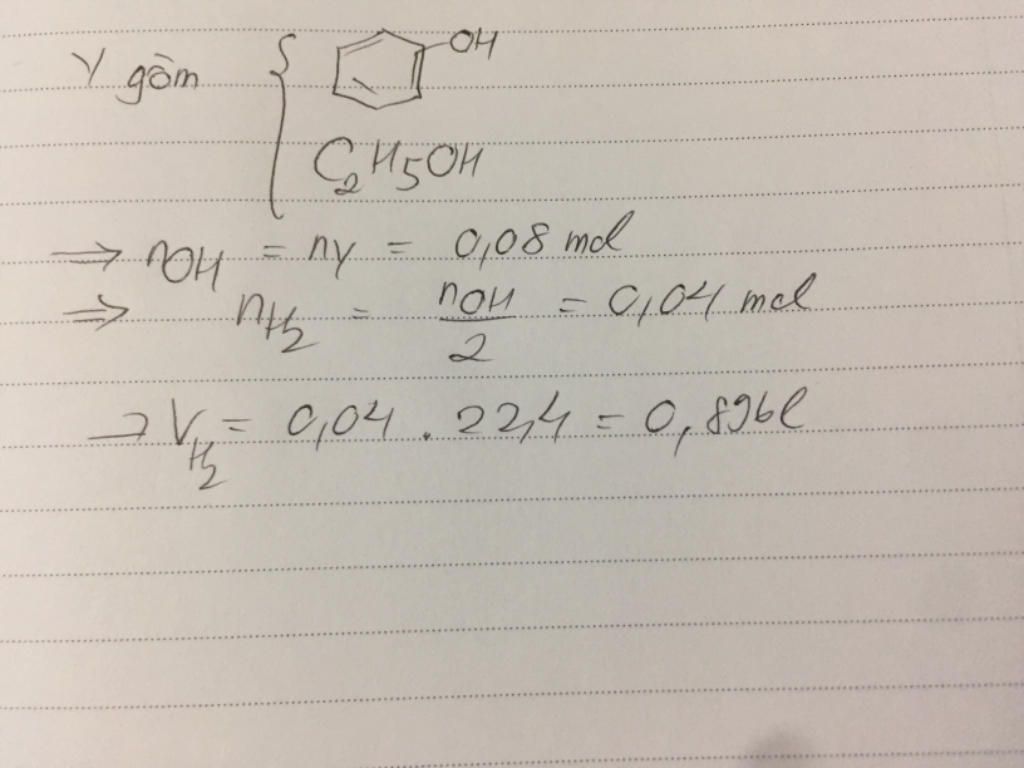 Y gồm { OH
C2H5OH
=> nOH = ny = 0,08 mol
=> nH2 = nOH/2 = 0,04 mol
→ VH2 = 0,04 . 22,4 = 0,896l